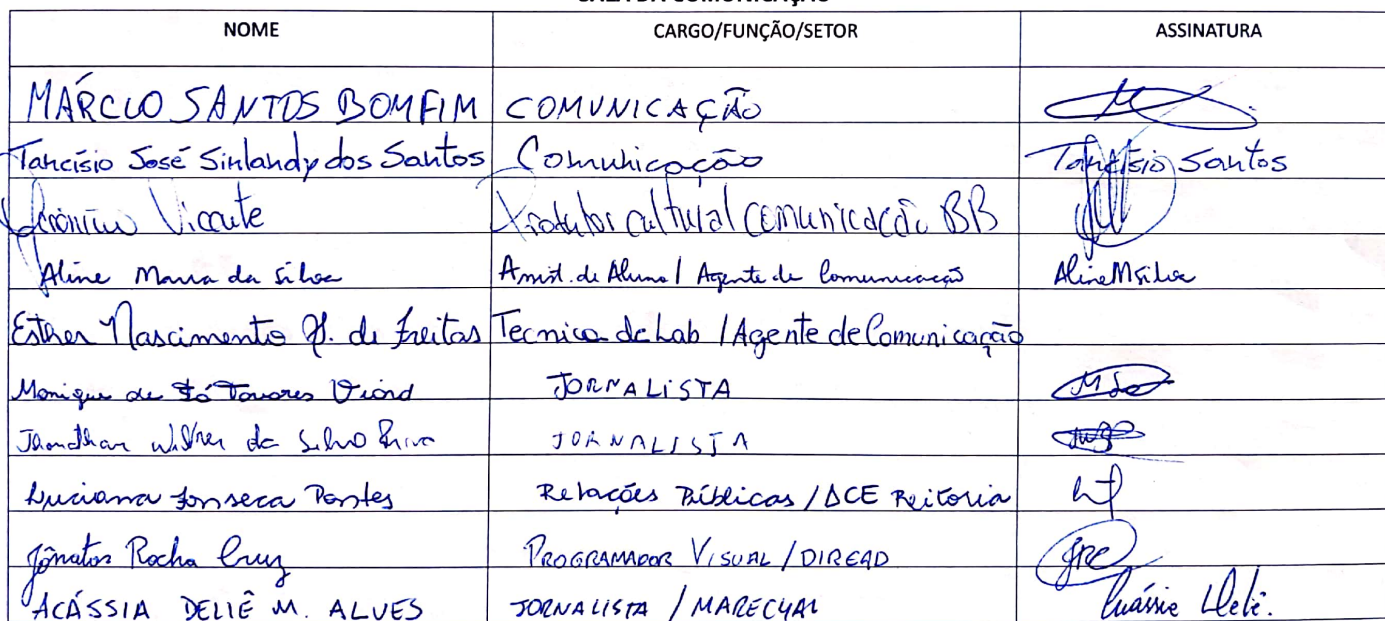 NOME CARGO/FUNÇÃO/SETOR ASSINATURA
MÁRCIO SANTOS BOMFIM COMUNICAÇÃO
Tarcísio José Sirlandy dos Santos Comunicação Tarcísio Santos
Jerônimo Vicente Produtor cultural comunicação BB
Aline Maria da Silva Assist. de Aluno / Agente de Comunicação Aline M Silva
Esther Nascimento de Freitas Tecnica de Lab / Agente de Comunicação
Monique de Sá Tavares JORNALISTA
Jhonathan da Silva JORNALISTA
Luciana Fonseca Pontes Relações Públicas / DCE Reitoria
Jônatas Rocha Cruz PROGRAMADOR VISUAL / DIREAD JRC
ACÁSSIA DELIÊ M. ALVES JORNALISTA / MARECHAL Acássia Deliê.